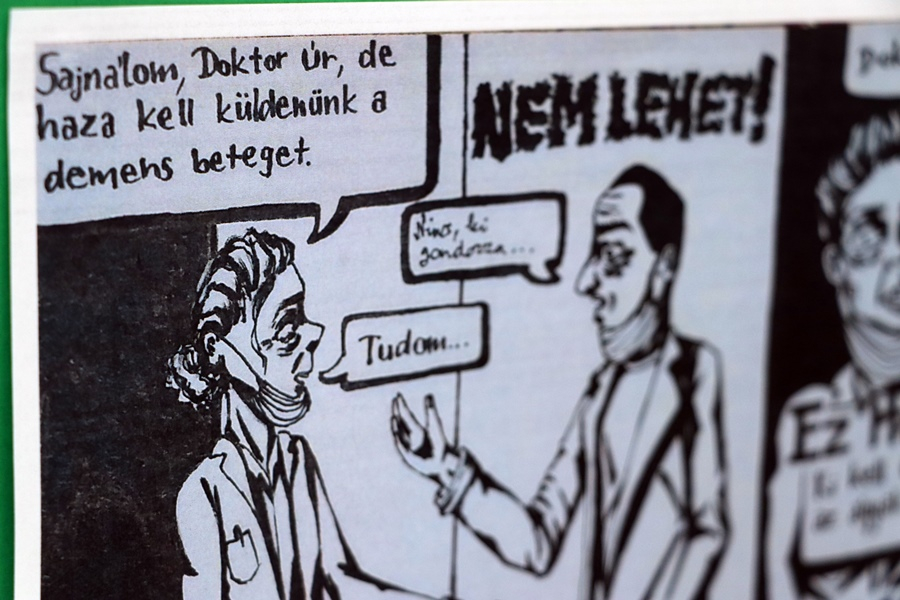 Sajnálom, Doktor Úr, de
haza kell küldenünk a
demens beteget.
NEM LEHET!
Nincs, ki
gondozza...
Tudom...
Dok
EZ
kell
az